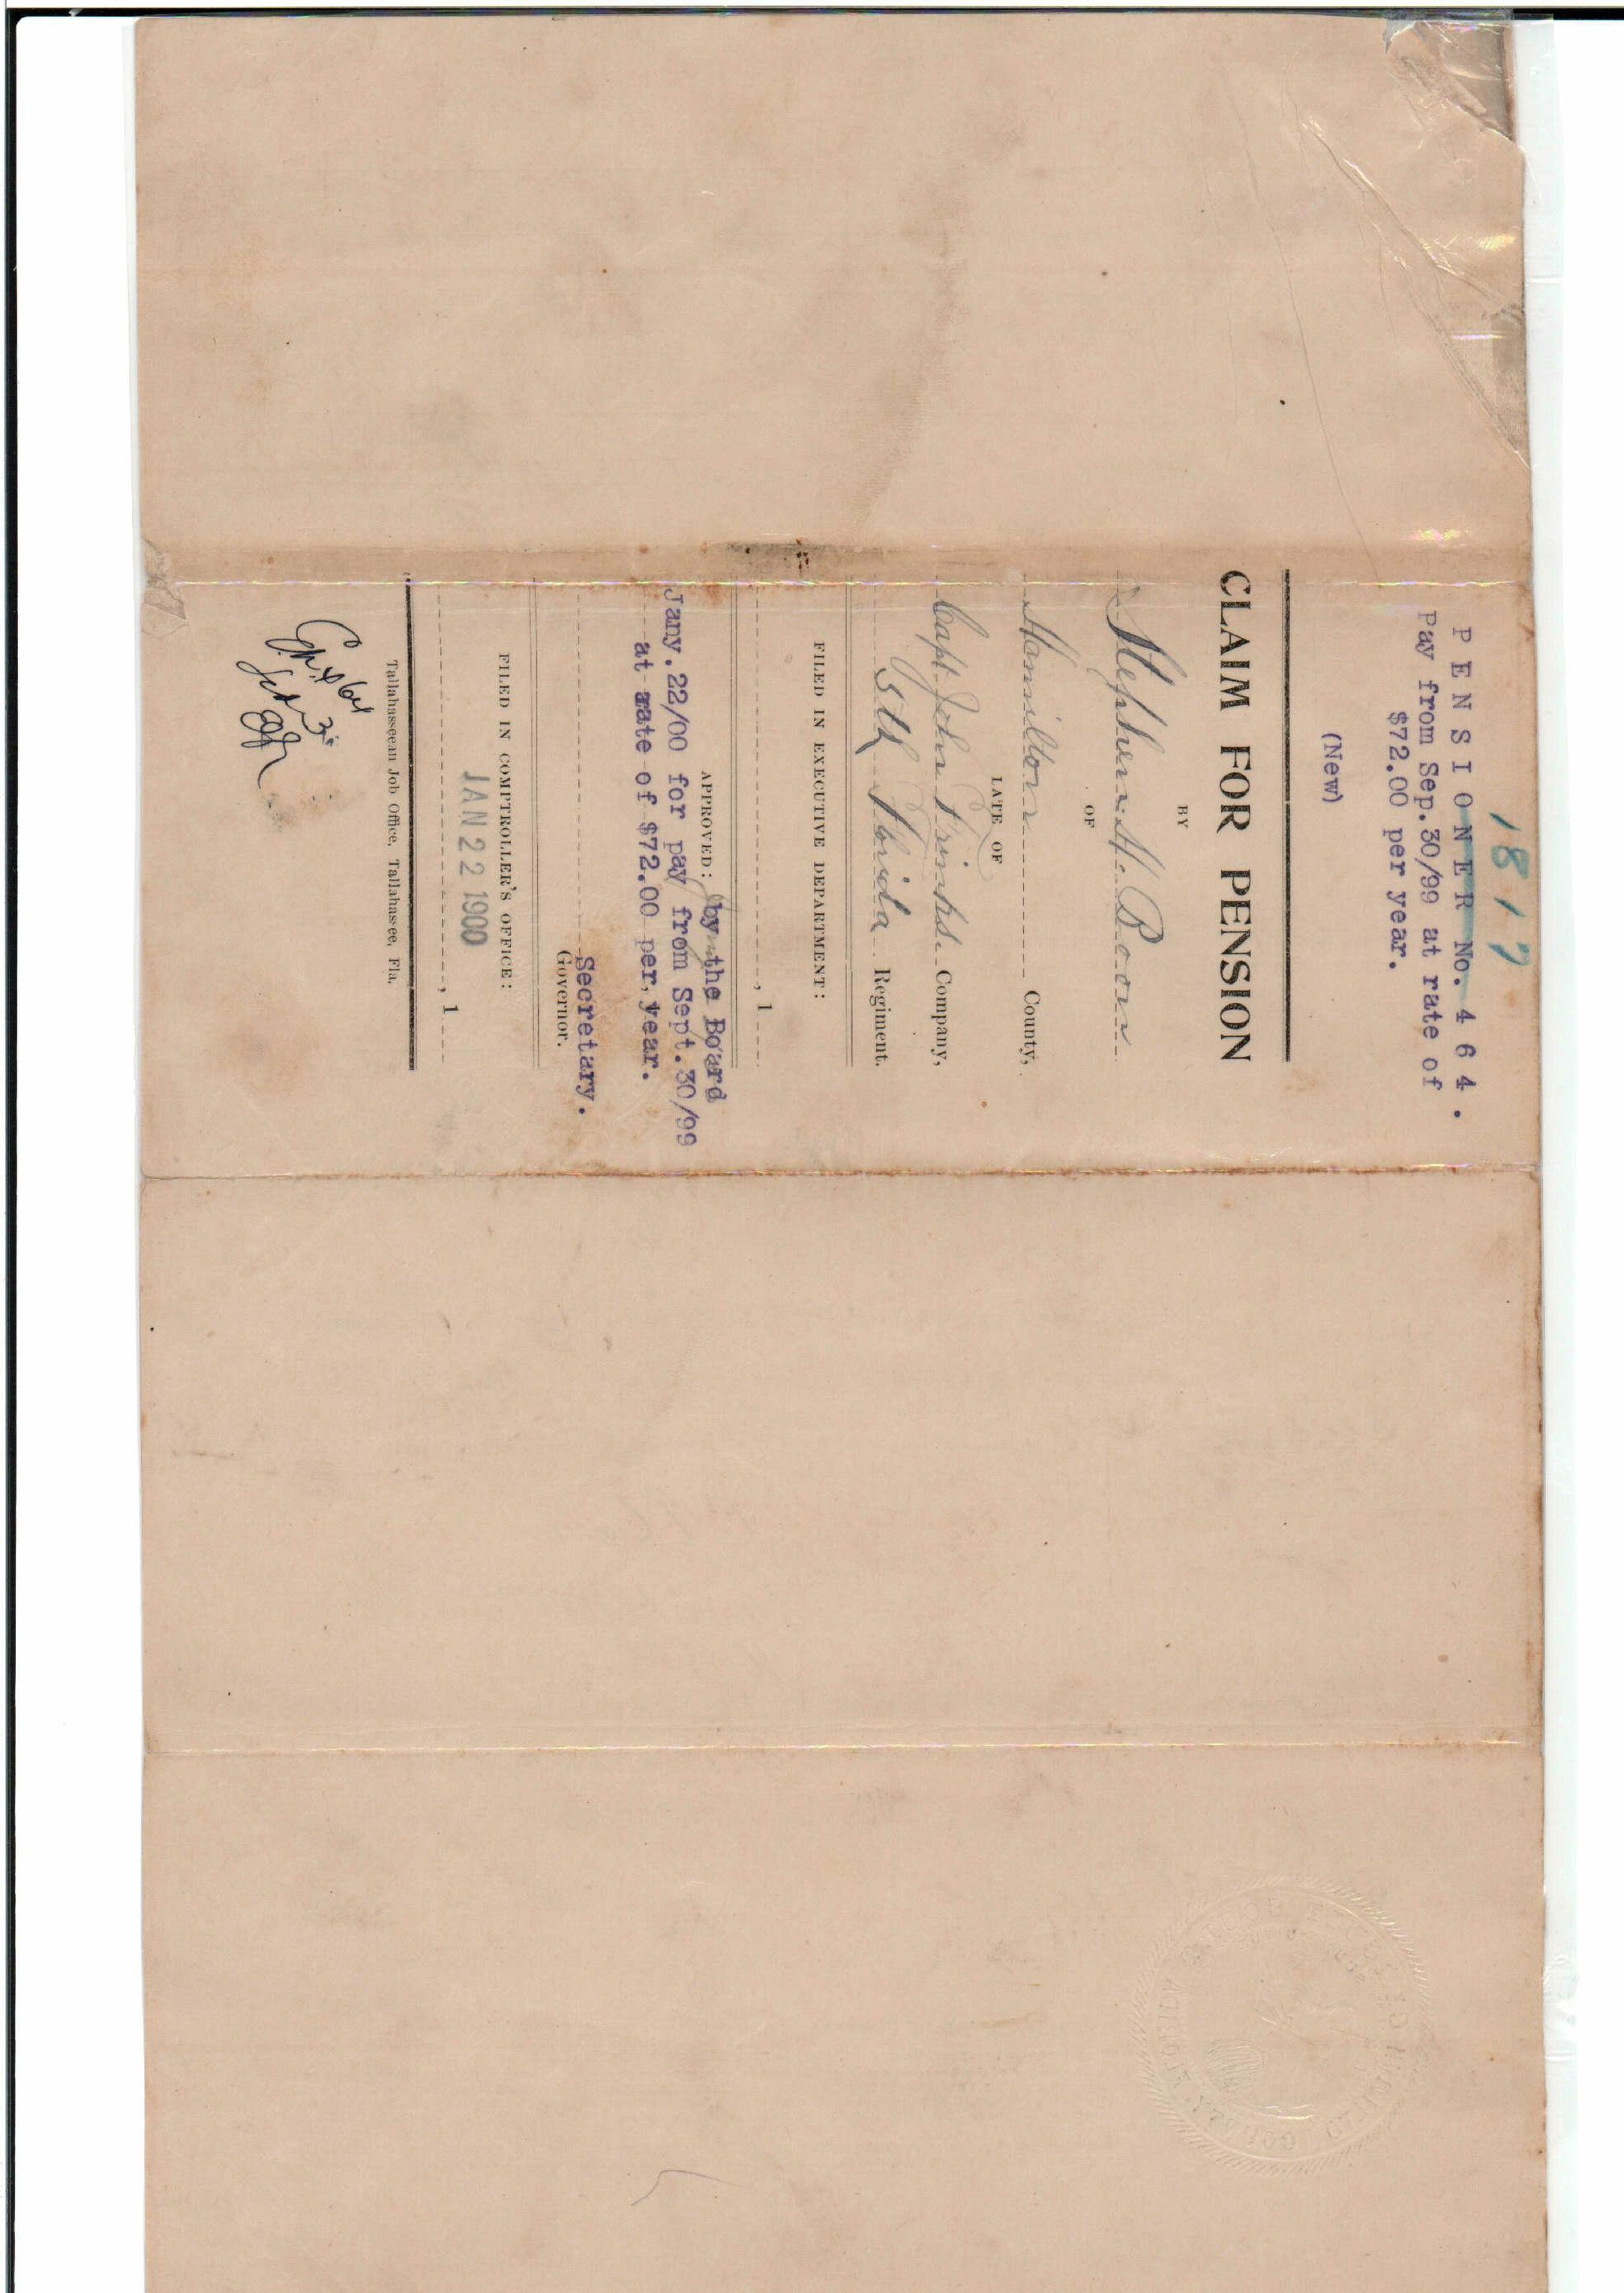 1817
PENSIONER No. 464.
Pay from Sep.30/99 at rate of
$72.00 per year.
(New)
CLAIM FOR PENSION
BY
Stephen H. Boon
OF
Hamilton County,
LATE OF
Capt John Frinks Company,
5th Florida Regiment.
FILED IN EXECUTIVE DEPARTMENT:
, 1
APPROVED: by the Board
Jany.22/00 for pay from Sept.30/99
at rate of $72.00 per year.
Secretary.
Governor.
FILED IN COMPTROLLER'S OFFICE:
JAN 22 1900
, 1
Tallahasseean Job Office, Tallahassee, Fla.